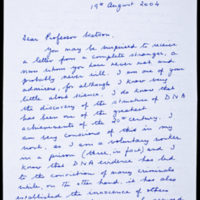 19th August 2004
Dear Professor Watson,
You may be surprised to receive
a letter from a complete stranger, a
man whom you have never met, and
probably never will. I am one of your
admirers, for although I know very
little about science, I do know that
the discovery of the structure of DNA
has been one of the greatest
achievements of the 20th century. I
am very conscious of this in my
work, as I am a voluntary worker
in a prison (three, in fact) and I
know that DNA evidence has led
to the conviction of many criminals
while, on the other hand, it has also
established the innocence of others